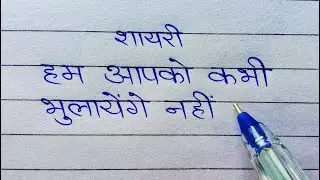 शायरी
हम आपको कभी
भुलायेंगे नहीं